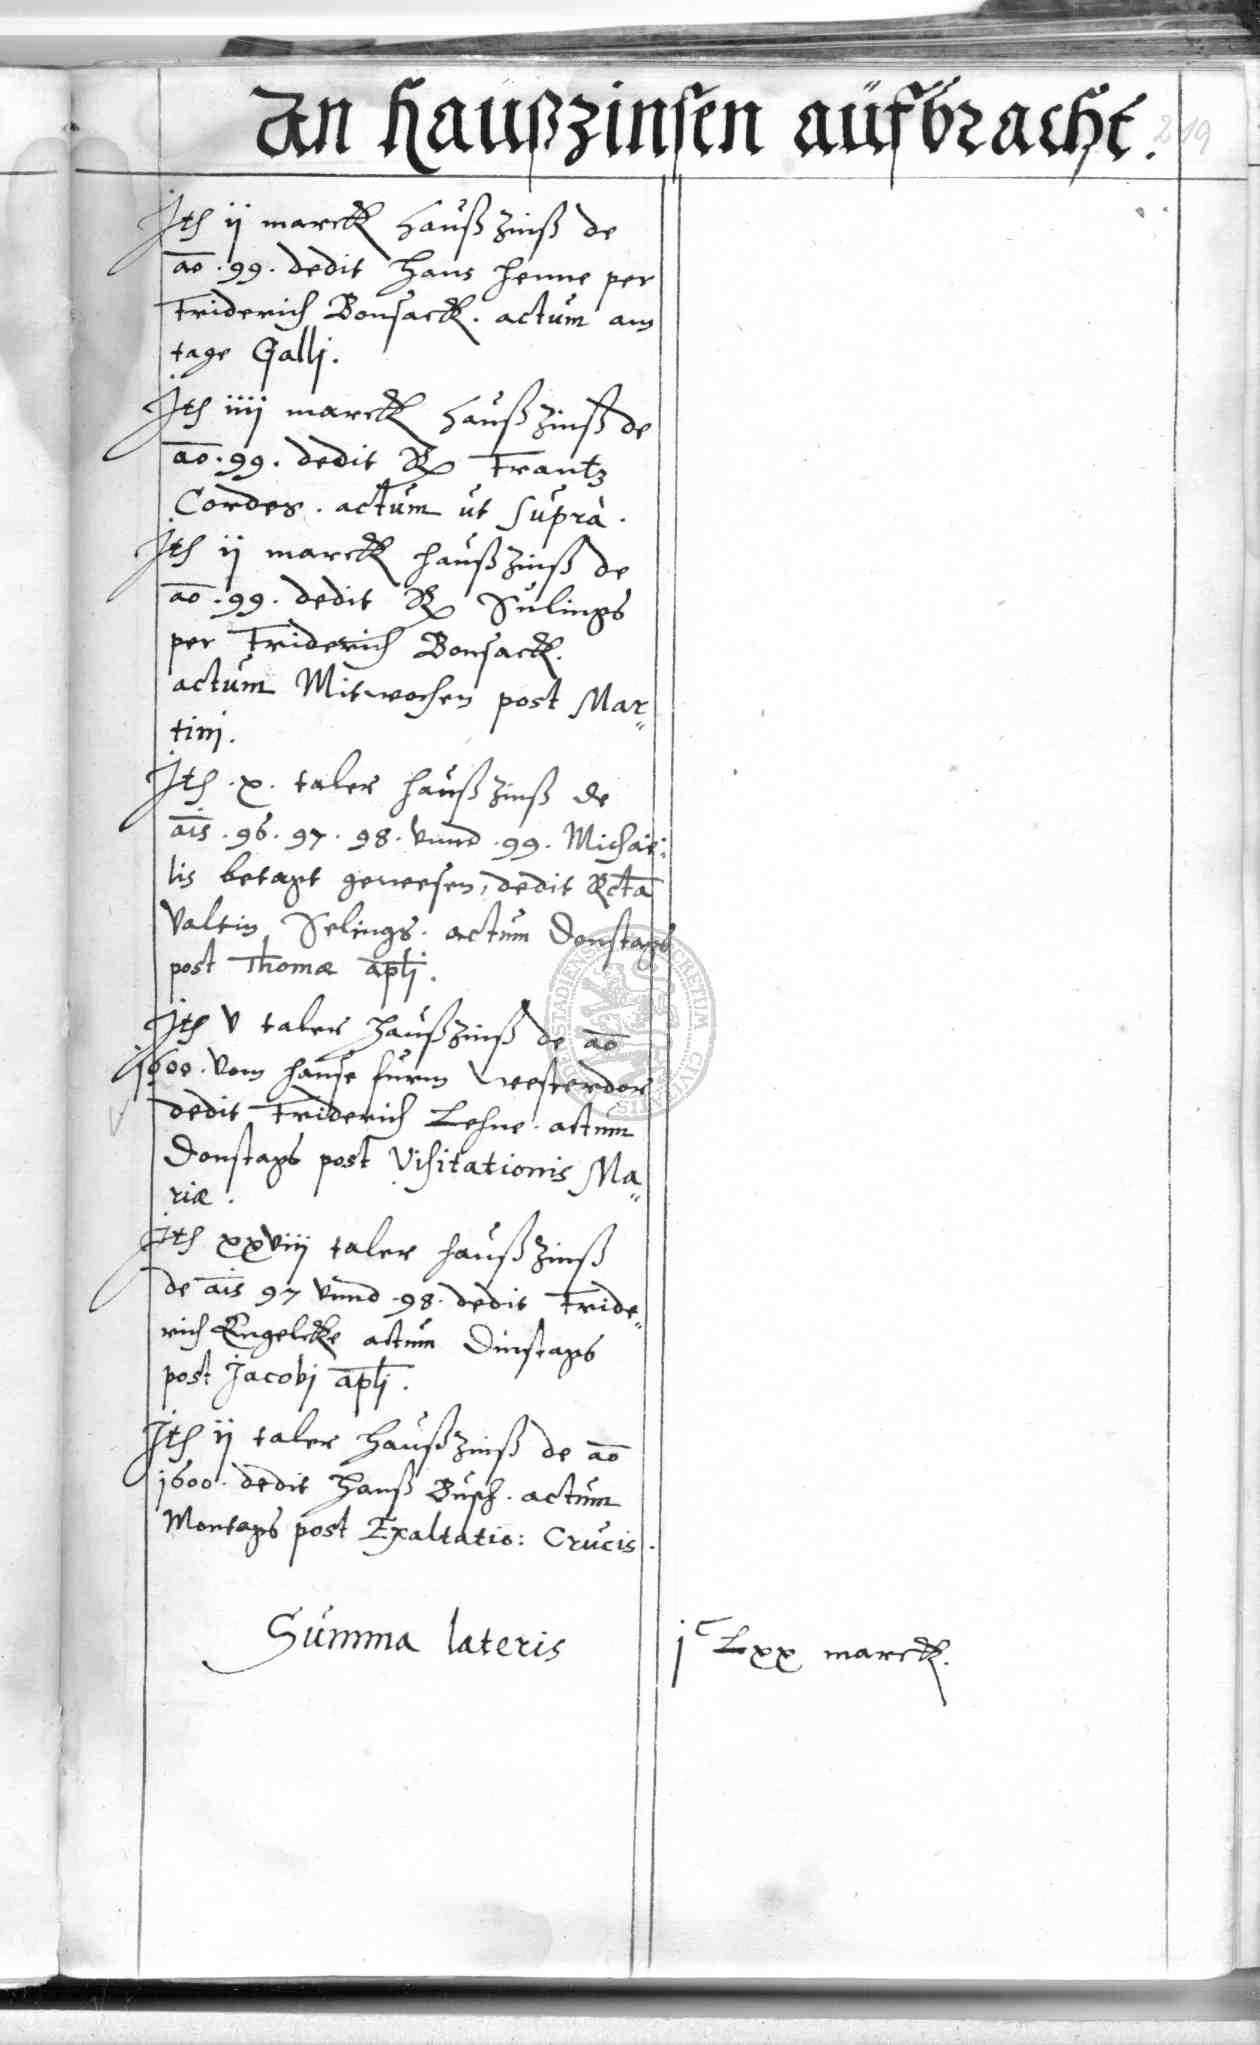 An haußzinsen aüfbracht.
219
Ith ij marck haußzinß de
ao . 99 . dedit Hans Henne per
Friderich Bonsack . actum am
tage Gallj .
Ith iiij marck haußzinß de
ao . 99 . dedit R Frantz
Cordes . actum ut supra .
Ith ij marck haußzinß de
ao . 99 . dedit R Sulings
per Friderich Bonsack .
actum Mitwochen post Mar„
tinj .
Ith . x . taler haußzinß de
ais . 96 . 97 . 98 . vnnd . 99 . Michae:
lis betagt gewesen, dedit Rcta
Valtin Selings . actum Donstags
post Thomæ apli .
Ith v taler Haußzinß de ao
1600 . vom hause furm westerdor
dedit Friderich Lehne . actum
Donstags post Visitationis Ma„
riæ .
Ith xxviij taler haußzinß
de ais 97 vnnd . 98 . dedit Fride„
rich Engelcke actum Dinstags
post Jacobj apli .
Ith ij taler Haußzinß de ao
1600 . dedit Hanß Busch . actum
Montags post Exaltatio: Crucis .
Summa lateris jc Lxx marck .
SECRETUM CIVITATIS